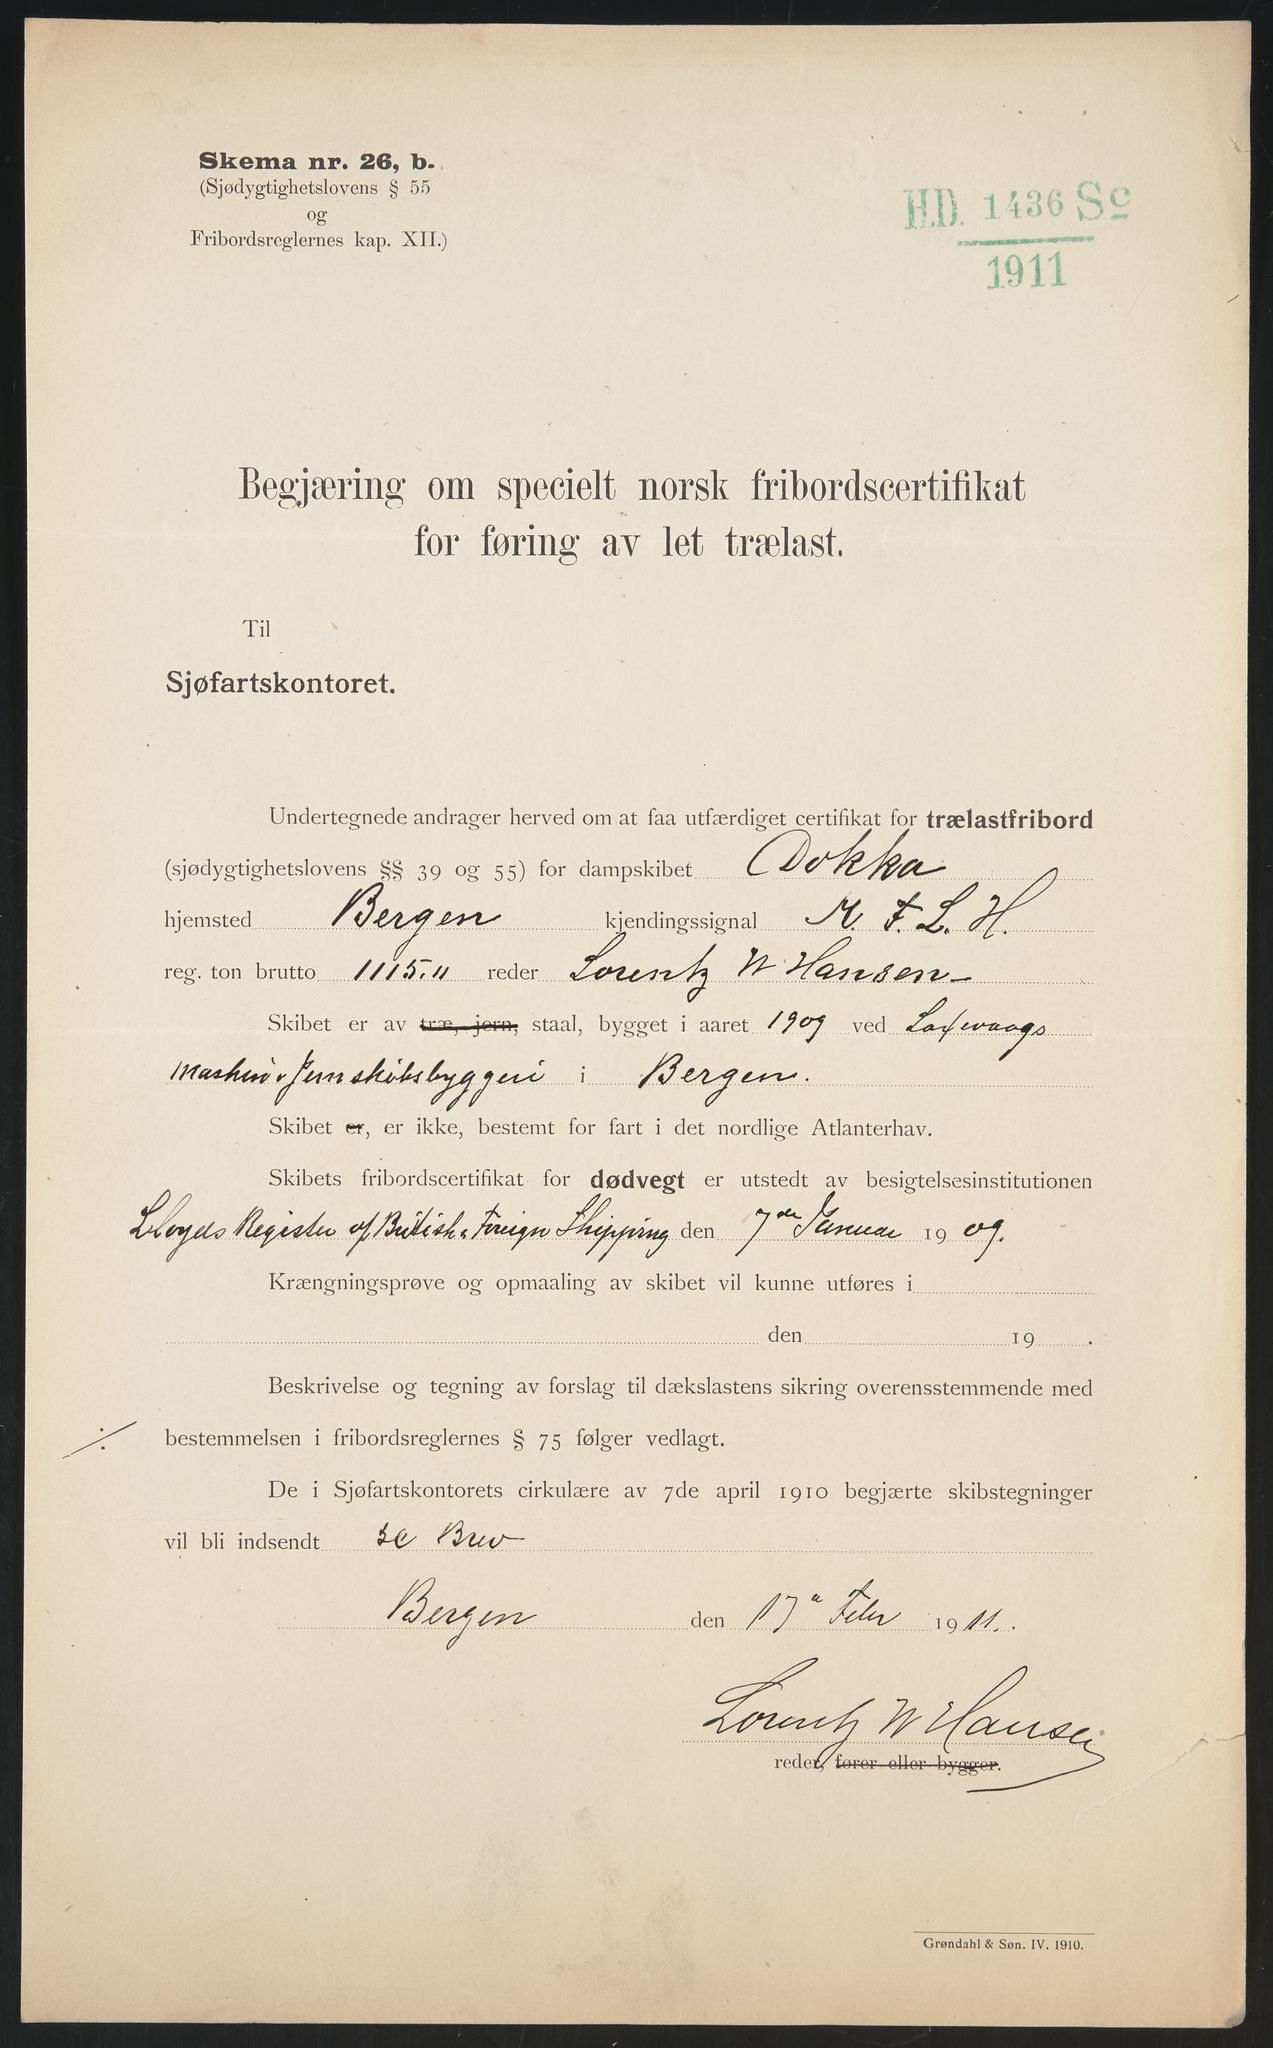 Skema nr. 26, b.
(Sjødygtighetslovens § 55
og
Fribordsreglernes kap. XII.)
H.D. 1436 Sc
1911
Begjæring om specielt norsk fribordscertifikat
for føring av let trælast.
Til
Sjøfartskontoret.
Undertegnede andrager herved om at faa utfærdiget certifikat for trælastfribord
(sjødygtighetslovens §§ 39 og 55) for dampskibet Dokka
hjemsted Bergen kjendingssignal M. F. L. H.
reg. ton brutto 1115.11 reder Lorentz W Hansen
Skibet er av træ, jern, staal, bygget i aaret 1909 ved Laxevaags
Maskin & Jernskibsbyggeri i Bergen.
Skibet er, er ikke, bestemt for fart i det nordlige Atlanterhav.
Skibets fribordscertifikat for dødvegt er utstedt av besigtelsesinstitutionen
Lloyds Register of British & Foreign Shipping den 7de Januar 1909.
Krængningsprøve og opmaaling av skibet vil kunne utføres i
den 19 .
Beskrivelse og tegning av forslag til dækslastens sikring overensstemmende med
bestemmelsen i fribordsreglernes § 75 følger vedlagt.
De i Sjøfartskontorets cirkulære av 7de april 1910 begjærte skibstegninger
vil bli indsendt se Brev
Bergen den 17 Febr 1911.
Lorentz W Hansen
reder, fører eller bygger.
Grøndahl & Søn. IV. 1910.